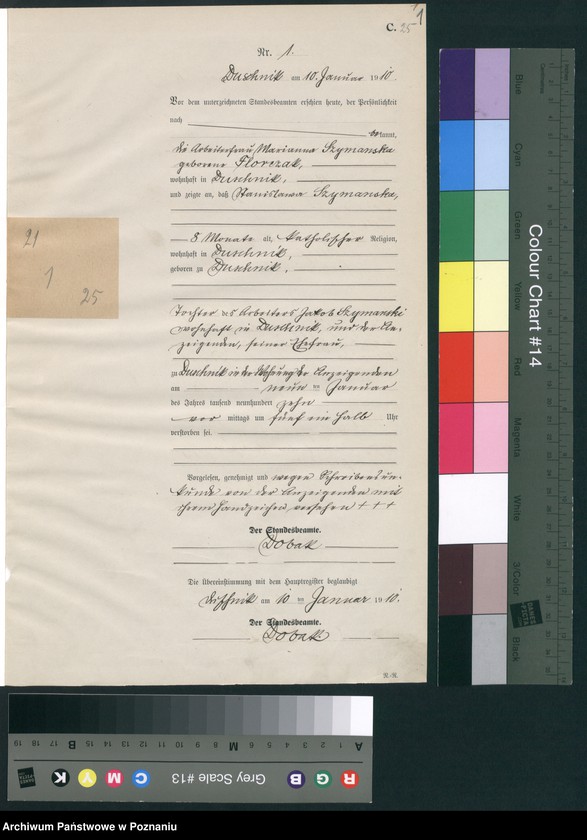 C. 25
1
Nr. 1.
Duschnik am 10. Januar 1910.
Vor dem unterzeichneten Standesbeamten erschien heute, der Persönlichkeit
nach
bekannt,
die Arbeiterfrau Marianna Szymanska
geborene Florczak,
wohnhaft in Duschnik,
und zeigte an, daß Stanislawa Szymanska,
8 Monate alt, katholischer Religion,
wohnhaft in Duschnik,
geboren zu Duschnik,
21
1
25
Tochter des Arbeiters Jakob Szymanski
wohnhaft in Duschnik, und der An-
zeigenden, seiner Ehefrau,
zu Duschnik in der Wohnung der Anzeigenden
am neunten Januar
des Jahres tausend neunhundert zehn
vor mittags um fünf ein halb Uhr
verstorben sei.
Vorgelesen, genehmigt und wegen Schreibensun-
kunde von der Anzeigenden mit
ihrem Handzeichen versehen + + +
Der Standesbeamte.
Dobak
Die Übereinstimmung mit dem Hauptregister beglaubigt
Duschnik am 10 ten Januar 1910.
Der Standesbeamte.
Dobak
Colour Chart #14
Blue
Cyan
Green
Yellow
Red
Magenta
White
3/Color
Black
Grey Scale #13
R G B
C M Y K
A 1 2 3 4 5 6 M 8 9 10 11 12 13 14 15 B 17 18 19
Archiwum Państwowe w Poznaniu